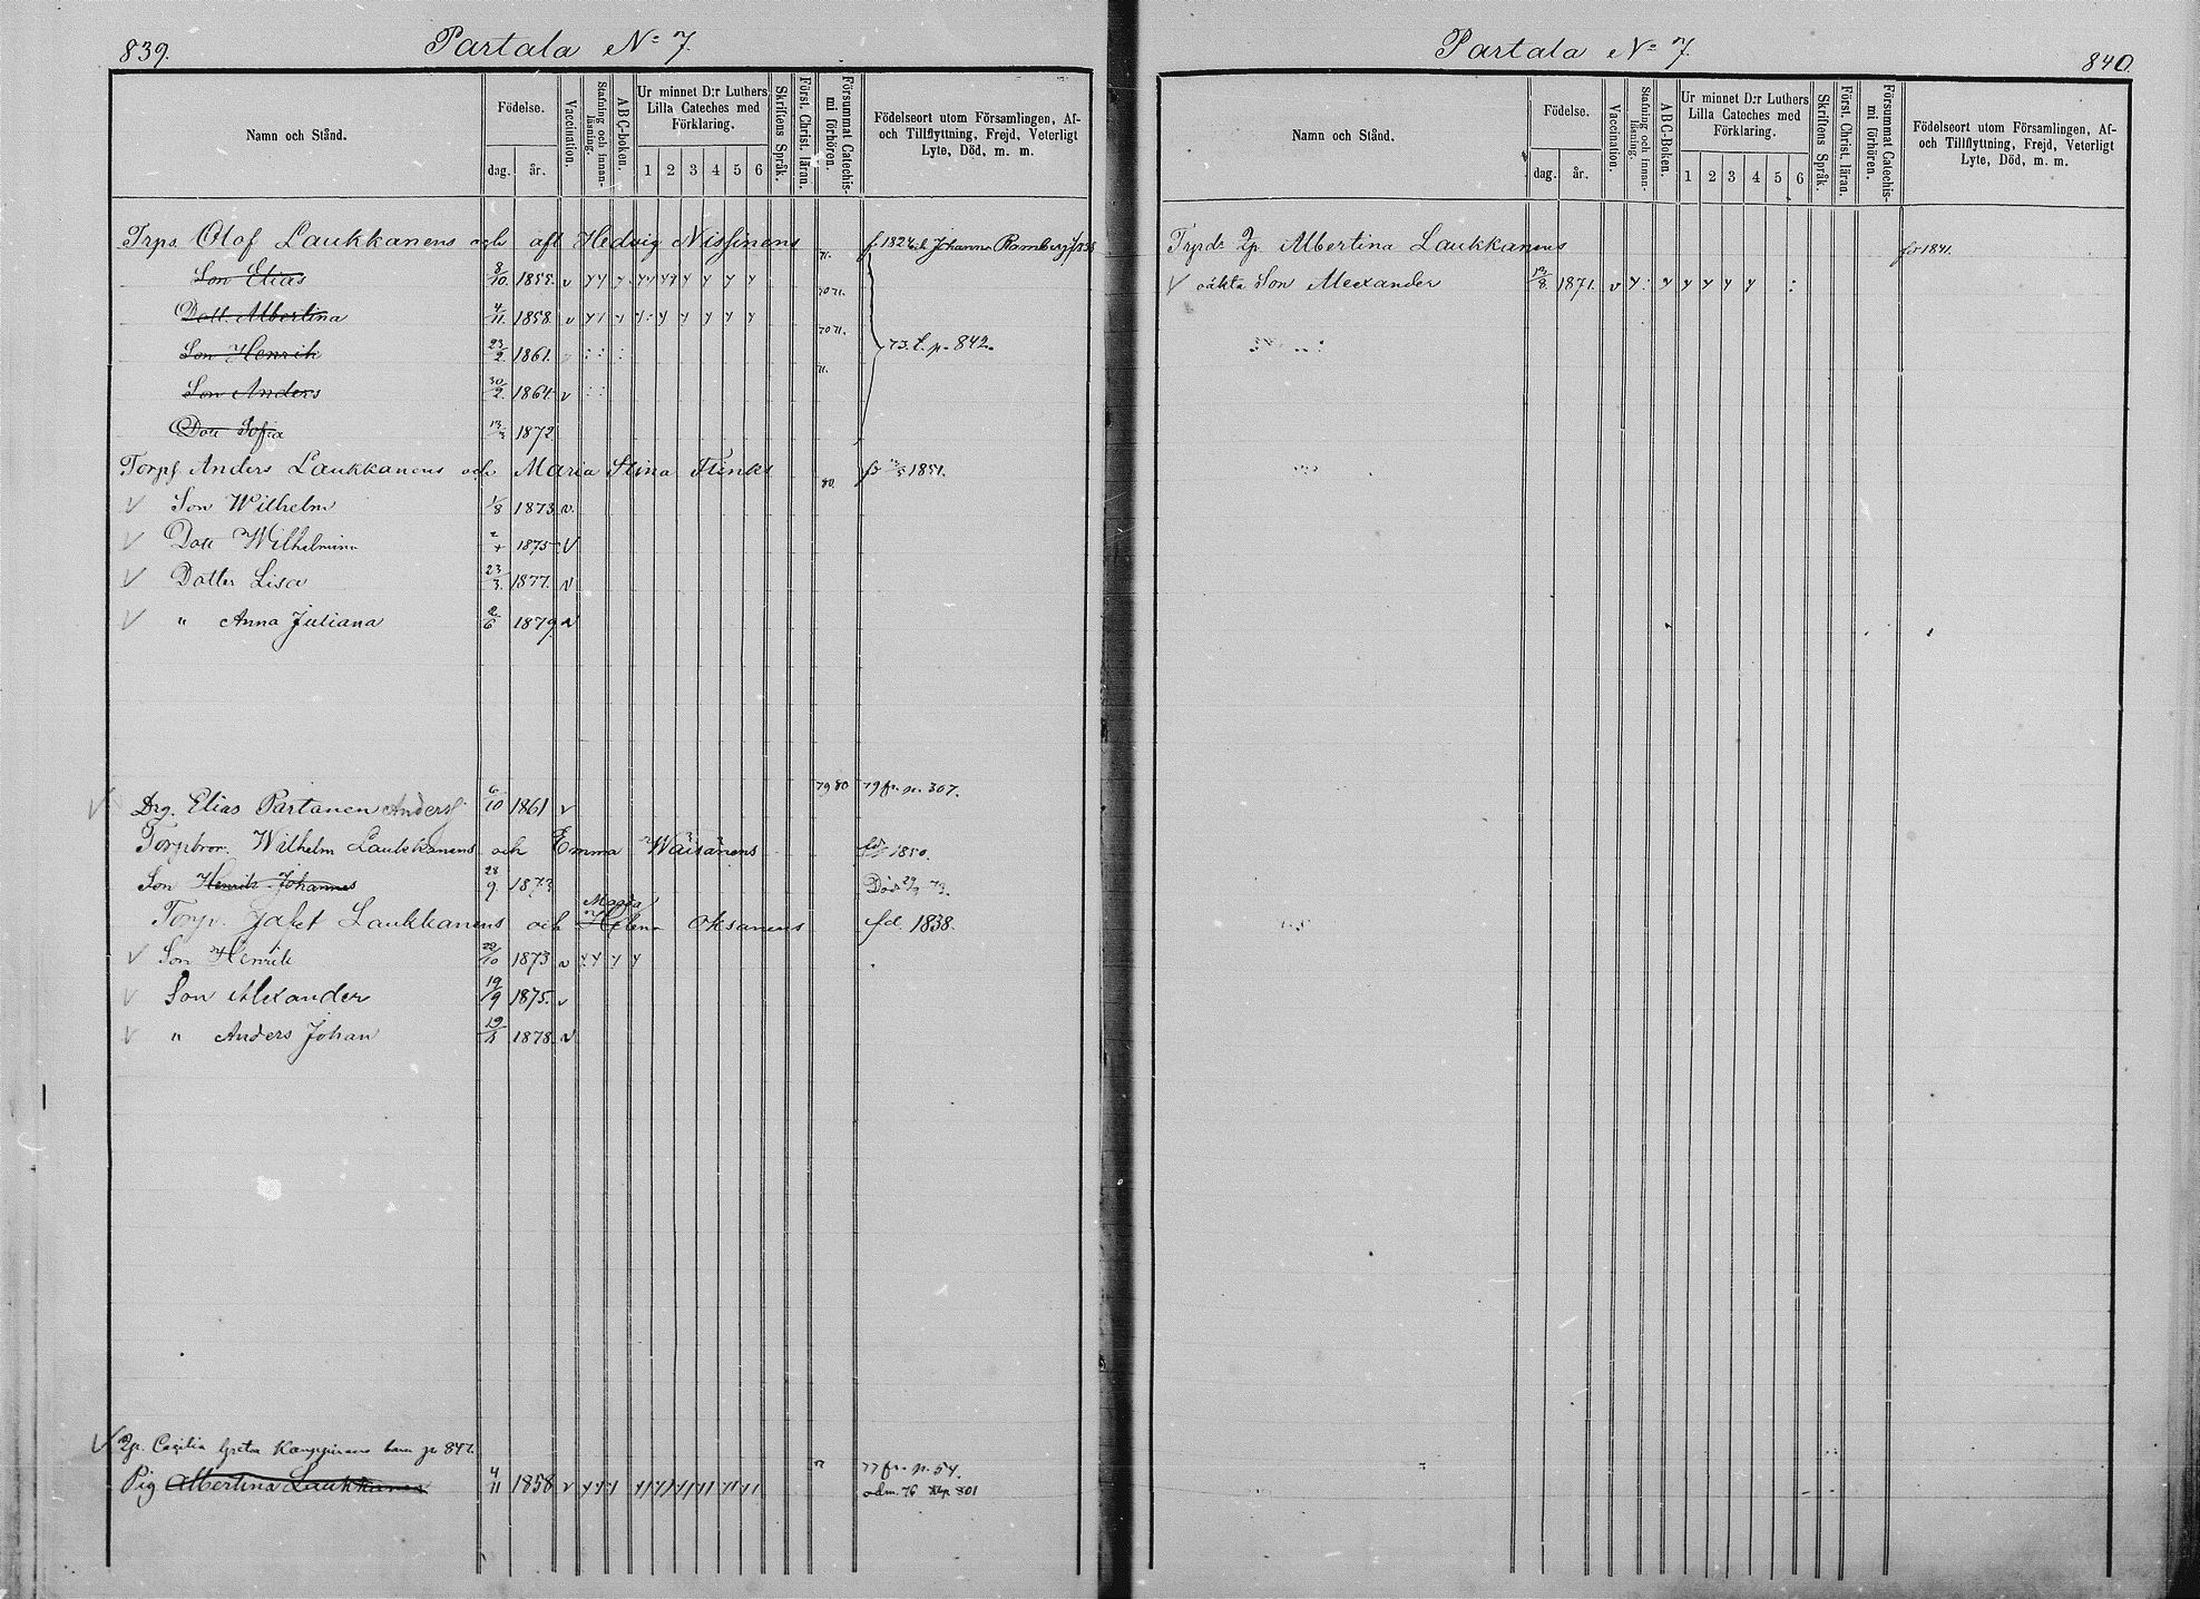 839.
Partala No 7.
Namn och Stånd.
Födelse.
dag.
år.
Vaccination.
Stafning och innan-
läsning.
ABC-boken.
Ur minnet D:r Luthers
Lilla Cateches med
Förklaring.
1 2 3 4 5 6
Skriftens Språk.
Först. Christ. läran.
Försummat Catechis-
mi förhören.
Födelseort utom Församlingen, Af-
och Tillflyttning, Frejd, Veterligt
Lyte, Död, m. m.
Trps. Olof Laukkanens och aft Hedvig Nissinens f. 1824 Johanna Ramberg 1838
Son Elias 8/10. 1855. v 71.
Dott. Albertina 4/11. 1858. v 70 71. 73. t. p. 842.
Son Henrik 23/2. 1861. 70 71.
Son Anders 30/2. 1864. v 71.
Dott Sofia 13/3 1872
Torps. Anders Laukkanens och Maria Stina Flinks 80. 1851.
v Son Wilhelm 1/8 1873 v.
v Dott Wilhelmina 1875 v
v Dotter Lisa 23/3. 1877. v
v " Anna Juliana 2/6 1879 v
v Drg. Elias Partanen Anderss 6/10 1861 v 79 80 79 fr. p. 307.
Torpbror. Wilhelm Laukkanens och Emma Waisänens 1850.
Son Henrik Johannes 28/9. 1873 Död 29/9 73.
Torp. Jakob Laukkanens och Helena Magda Oksanens fd. 1838.
v Son Henrik 22/10 1873 v
v Son Alexander 19/9 1875. v
v " Anders Johan 1878 v
v Qp. Cecilia Greta barn p 842.
Pig Albertina Laukkanen 4/11 1858 v 77 77 fr. p. 54.
76 801
Partala No 7.
840.
Namn och Stånd.
Födelse.
dag.
år.
Vaccination.
Stafning och innan-
läsning.
ABC-Boken.
Ur minnet D:r Luthers
Lilla Cateches med
Förklaring.
1 2 3 4 5 6
Skriftens Språk.
Först. Christ. läran.
Försummat Catechis-
mi förhören.
Födelseort utom Församlingen, Af-
och Tillflyttning, Frejd, Veterligt
Lyte, Död, m. m.
Trpdr Qp. Albertina Laukkanens 1841.
v oäkta Son Alexander 13/8. 1871. v